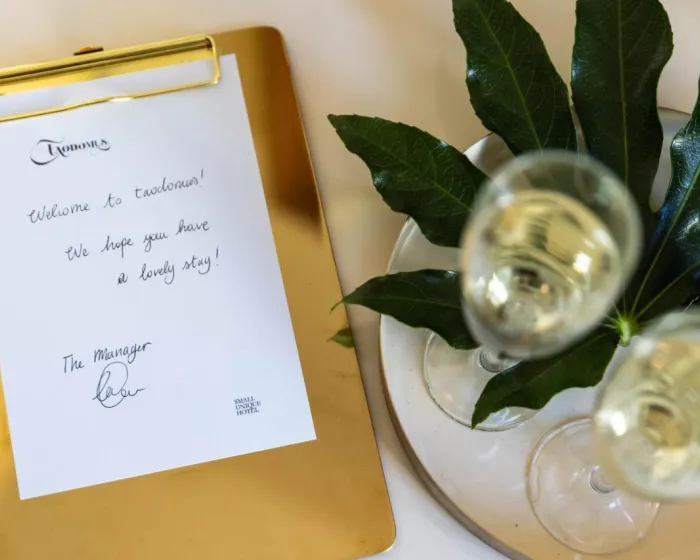 Txodomus
Welcome to txodomus!
We hope you have
a lovely stay!
The Manager
SMALL
UNIQUE
HOTEL